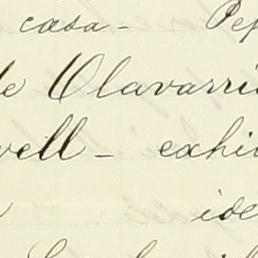 casa - Pep
de Olavarri
well - exhi
ide